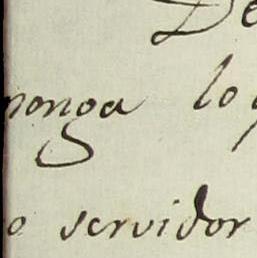 De
ponga lo
o servidor